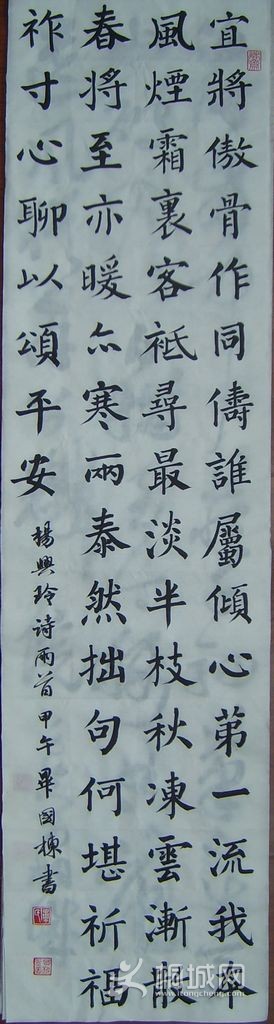 宜將傲骨作同儔誰屬傾心第一流我本
風煙霜裏客祗尋最淡半枝秋凍雲漸散
春將至亦暖亦寒兩泰然拙句何堪祈福
祚寸心聊以頌平安
楊興玲詩兩首甲午畢國棟書